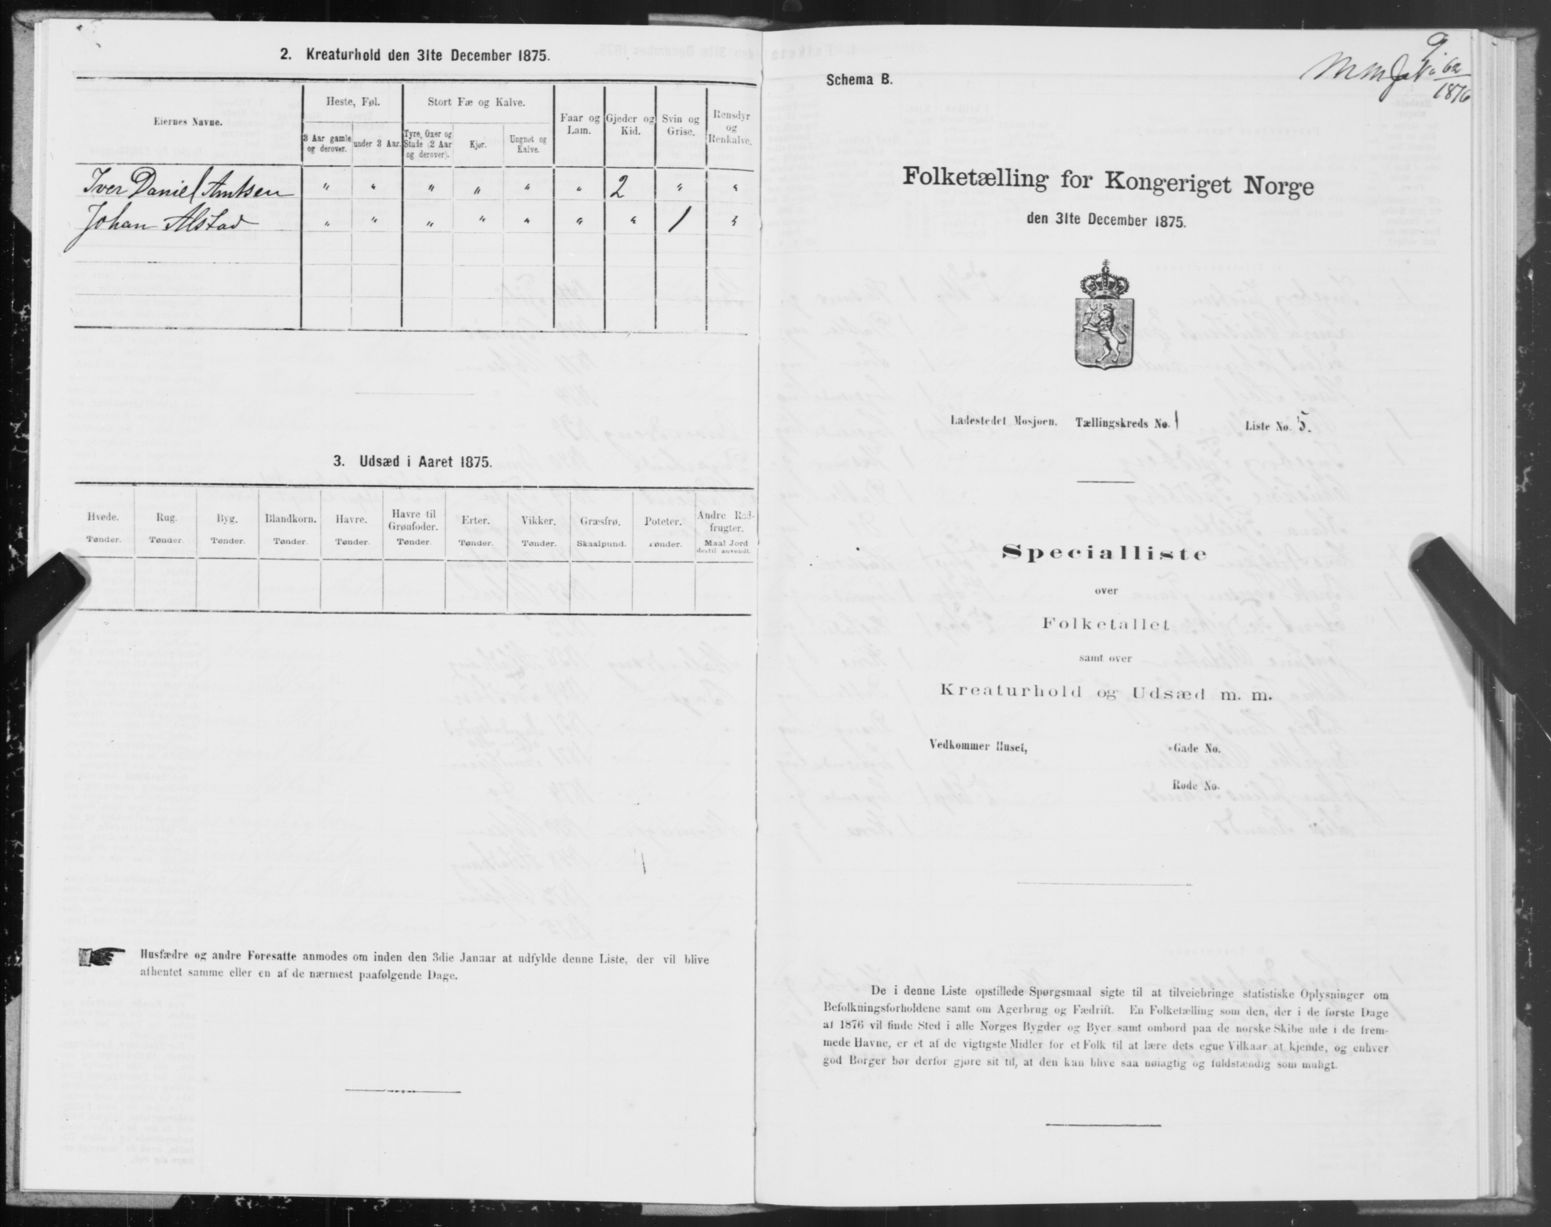 2. Kreaturhold den 31te December 1875.
Eiernes Navne.
Heste, Føl.
Stort Fæ og Kalve.
Faar og Lam.
Gjeder og Kid.
Svin og Grise.
Rensdyr og Renkalve.
3 Aar gamle og derover.
under 3 Aar.
Tyre, Oxer og Stude (2 Aar og derover).
Kjør.
Ungnet og Kalve.
Iver Daniel Amtsen " " " " " " 2 " "
Johan Alstad " " " " " " " 1 "
3. Udsæd i Aaret 1875.
Hvede. Rug. Byg. Blandkorn. Havre. Havre til Grønfoder. Erter. Vikker. Græsfrø. Poteter. Andre Rodfrugter.
Tønder. Tønder. Tønder. Tønder. Tønder. Tønder. Tønder. Tønder. Skaalpund. Tønder. Maal Jord dertil anvendt.
Husfædre og andre Foresatte anmodes om inden den 3die Januar at udfylde denne Liste, der vil blive
afhentet samme eller en af de nærmest paafølgende Dage.
Schema B.
62
1876
Folketælling for Kongeriget Norge
den 31te December 1875.
Ladestedet Mosjøen. Tællingskreds No. 1 Liste No. 5.
Specialliste
over
Folketallet
samt over
Kreaturhold og Udsæd m. m.
Vedkommer Huset, -Gade No.
Rode No.
De i denne Liste opstillede Spørgsmaal sigte til at tilveiebringe statistiske Oplysninger om
Befolkningsforholdene samt om Agerbrug og Fædrift. En Folketælling som den, der i de første Dage
af 1876 vil finde Sted i alle Norges Bygder og Byer samt ombord paa de norske Skibe ude i de frem-
mede Havne, er et af de vigtigste Midler for et Folk til at lære dets egne Vilkaar at kjende, og enhver
god Borger bør derfor gjøre sit til, at den kan blive saa nøiagtig og fuldstændig som muligt.